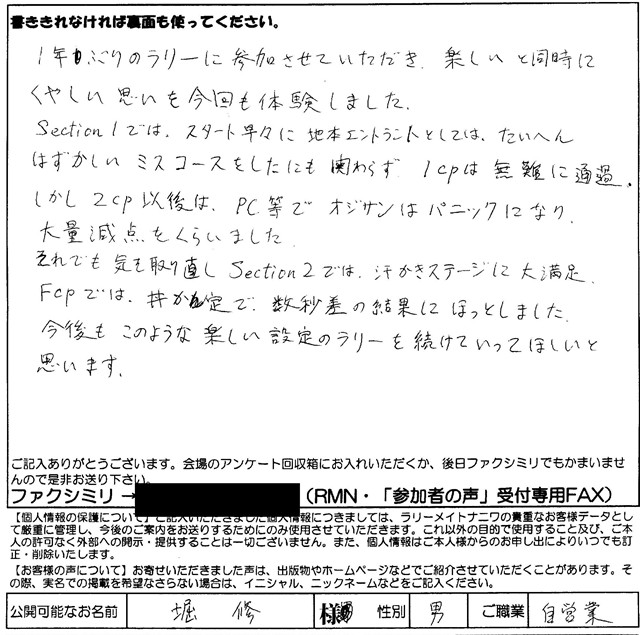 書ききれなければ裏面も使ってください。
1年ぶりのラリーに参加させていただき、楽しいと同時に
くやしい思いを今回も体験しました。
Section1では、スタート早々に地本エントラントとしては、たいへん
はずかしいミスコースをしたにも関わらず 1cpは無難に通過。
しかし2cp以後は、PC等でオジサンはパニックになり、
大量減点をくらいました
それでも気を取り直しSection2では、汗かきステージに大満足。
Fcpでは、 定で、数秒差の結果にほっとしました。
今後もこのような楽しい設定のラリーを続けていってほしいと
思います。
ご記入ありがとうございます。会場のアンケート回収箱にお入れいただくか、後日ファクシミリでもかまいませ
んので是非お送り下さい。
ファクシミリ→ (RMN・「参加者の声」受付専用FAX)
【個人情報の保護について】ご記入いただきました個人情報につきましては、ラリーメイトナニワの貴重なお客様データとし
て厳重に管理し、今後のご案内をお送りするためにのみ使用させていただきます。これ以外の目的で使用すること及び、ご本
人の許可なく外部への開示・提供することは一切ございません。また、個人情報はご本人様からのお申し出によりいつでも訂
正・削除いたします。
【お客様の声について】お寄せいただきました声は、出版物やホームページなどでご紹介させていただくことがあります。そ
の際、実名での掲載を希望なさらない場合は、イニシャル、ニックネームなどをご記入ください。
公開可能なお名前 堀 修 様 性別 男 ご職業 自営業